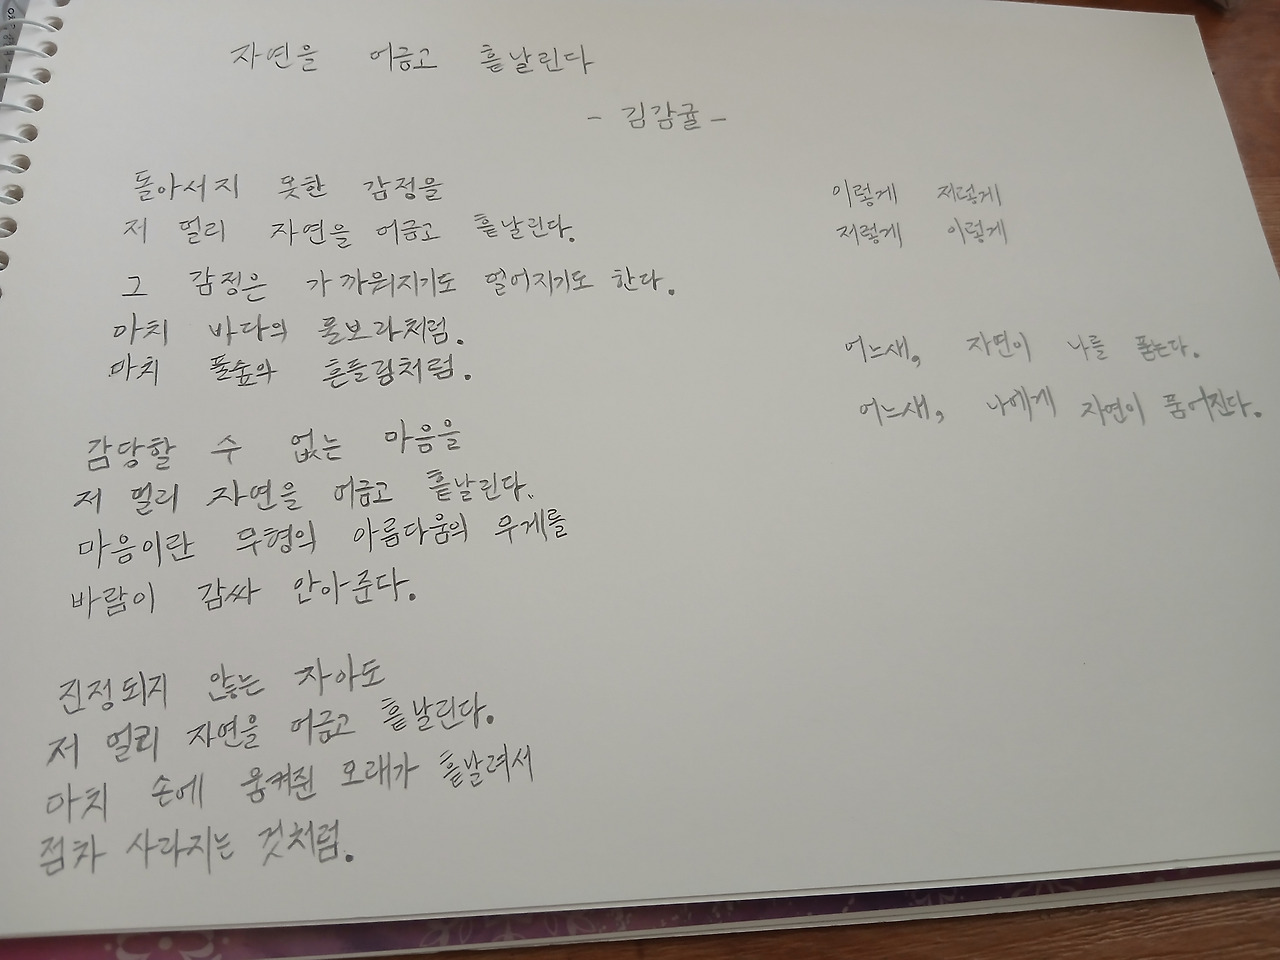 자연을 머금고 흩날린다
- 김감귤 -
돌아서지 못한 감정을
저 멀리 자연을 머금고 흩날린다.
그 감정은 가까워지기도 멀어지기도 한다.
마치 바다의 물보라처럼.
마치 풀숲의 흔들림처럼.
감당할 수 없는 마음을
저 멀리 자연을 머금고 흩날린다.
마음이란 무형의 아름다움의 무게를
바람이 감싸 안아준다.
진정되지 않는 자아도
저 멀리 자연을 머금고 흩날린다.
마치 손에 움켜쥔 모래가 흩날려서
점차 사라지는 것처럼.
이렇게 저렇게
저렇게 이렇게
어느새, 자연이 나를 품는다.
어느새, 나에게 자연이 품어진다.